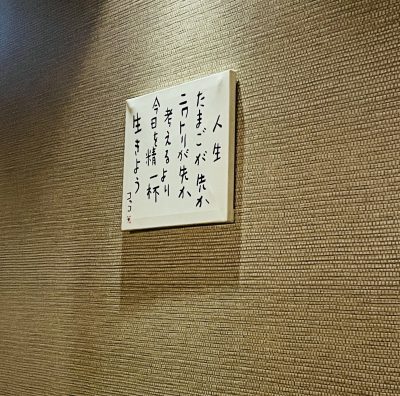 人生
たまごが先か
ニワトリが先か
考えるより
今日を精一杯
生きよう